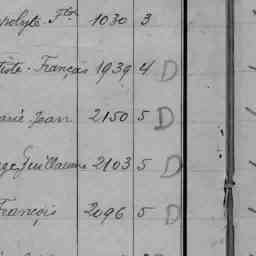 polyte. Fçois 1030 3
tiste. Français 1939 4 D
arie Jean 2150 5 D
ge Guillaume 2103 5 D
François 2096 5 D